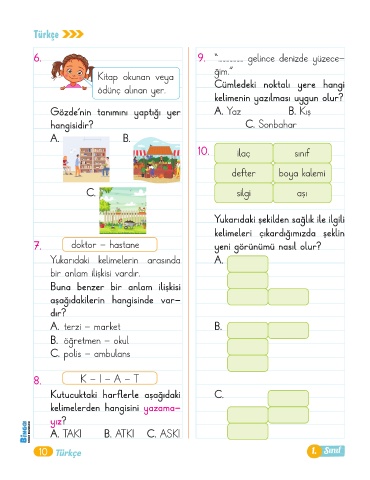 Türkçe
6.
Kitap okunan veya
ödünç alınan yer.
Gözde'nin tanımını yaptığı yer
hangisidir?
A.
B.
C.
7.
doktor – hastane
Yukarıdaki kelimelerin arasında
bir anlam ilişkisi vardır.
Buna benzer bir anlam ilişkisi
aşağıdakilerin hangisinde var-
dır?
A. terzi – market
B. öğretmen – okul
C. polis – ambulans
8.
K – I – A – T
Kutucuktaki harflerle aşağıdaki
kelimelerden hangisini yazama-
yız?
A. TAKI B. ATKI C. ASKI
9. "............ gelince denizde yüzece-
ğim."
Cümledeki noktalı yere hangi
kelimenin yazılması uygun olur?
A. Yaz B. Kış
C. Sonbahar
10.
ilaç sınıf
defter boya kalemi
silgi aşı
Yukarıdaki şekilden sağlık ile ilgili
kelimeleri çıkardığımızda şeklin
yeni görünümü nasıl olur?
A.
B.
C.
BİNGO!
10 Türkçe
1. Sınıf